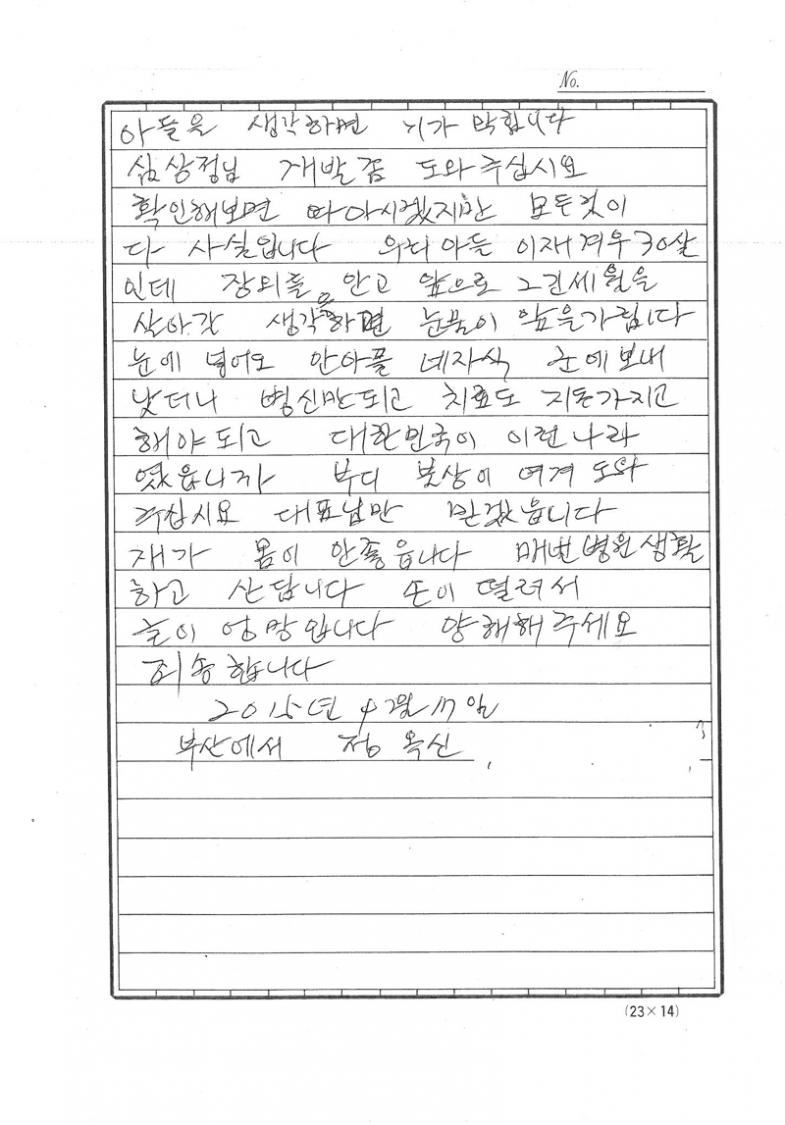 No.
아들을 생각하면 기가 막힙니다
심상정님 재발좀 도와주십시요
확인해보면 따아시겠지만 모든것이
다 사실입니다 우리아들 이재겨우30살
인데 장외를 안고 앞으로 그긴세월을
살아갈 생각을하면 눈물이 앞을가립니다
눈에 넣어도 안아플 네자식 군에보내
낫더니 병신만되고 치료도 지돈가지고
해야되고 대한민국이 이런나라
였읍니까 부디 불상이 여겨 도와
주십시요 대표님만 믿겠읍니다
재가 몸이 안좋읍니다 매번병원생활
하고 산답니다 손이 떨려서
글이 엉망입니다 양해해주세요
죄송합니다
2015년 4월 17일
부산에서 정옥신
(23×14)